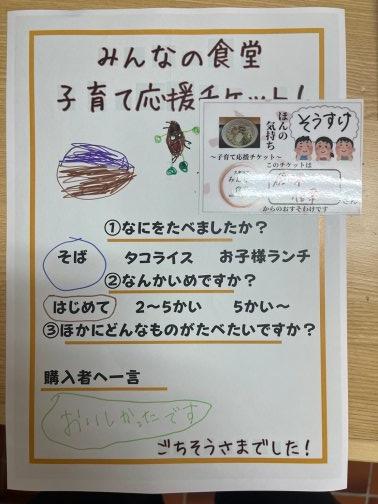 みんなの食堂
子育て応援チケット！
ほんの
気持ち
そうすけ
～子育て応援チケット～
このチケットは
さん
からのおすそわけです
①なにをたべましたか？
そば タコライス お子様ランチ
②なんかいめですか？
はじめて 2～5かい 5かい～
③ほかにどんなものがたべたいですか？
購入者へ一言
おいしかったです
ごちそうさまでした！